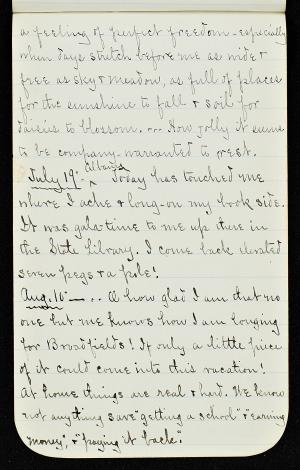 a feeling of perfect freedom - especially
when days stretch before me as wide &
free as sky & meadow, as full of places
for the sunshine to fall & soil for
daisies to blossom. ... How jolly it seems
to be company - warranted to rest.
July 19. Albany Today has touched me
where I ache & long - on my book side.
It was gala time to me up there in
the State Library. I come back elevated
seven pegs & a pole!
Aug. 10 - ... O how glad I am that no
one but me knows how I am longing
for Broadfields! If only a little piece
of it could come into this vacation!
At home things are real & hard. We know
not anything save "getting a school" & "earning
money", & "paying it back".